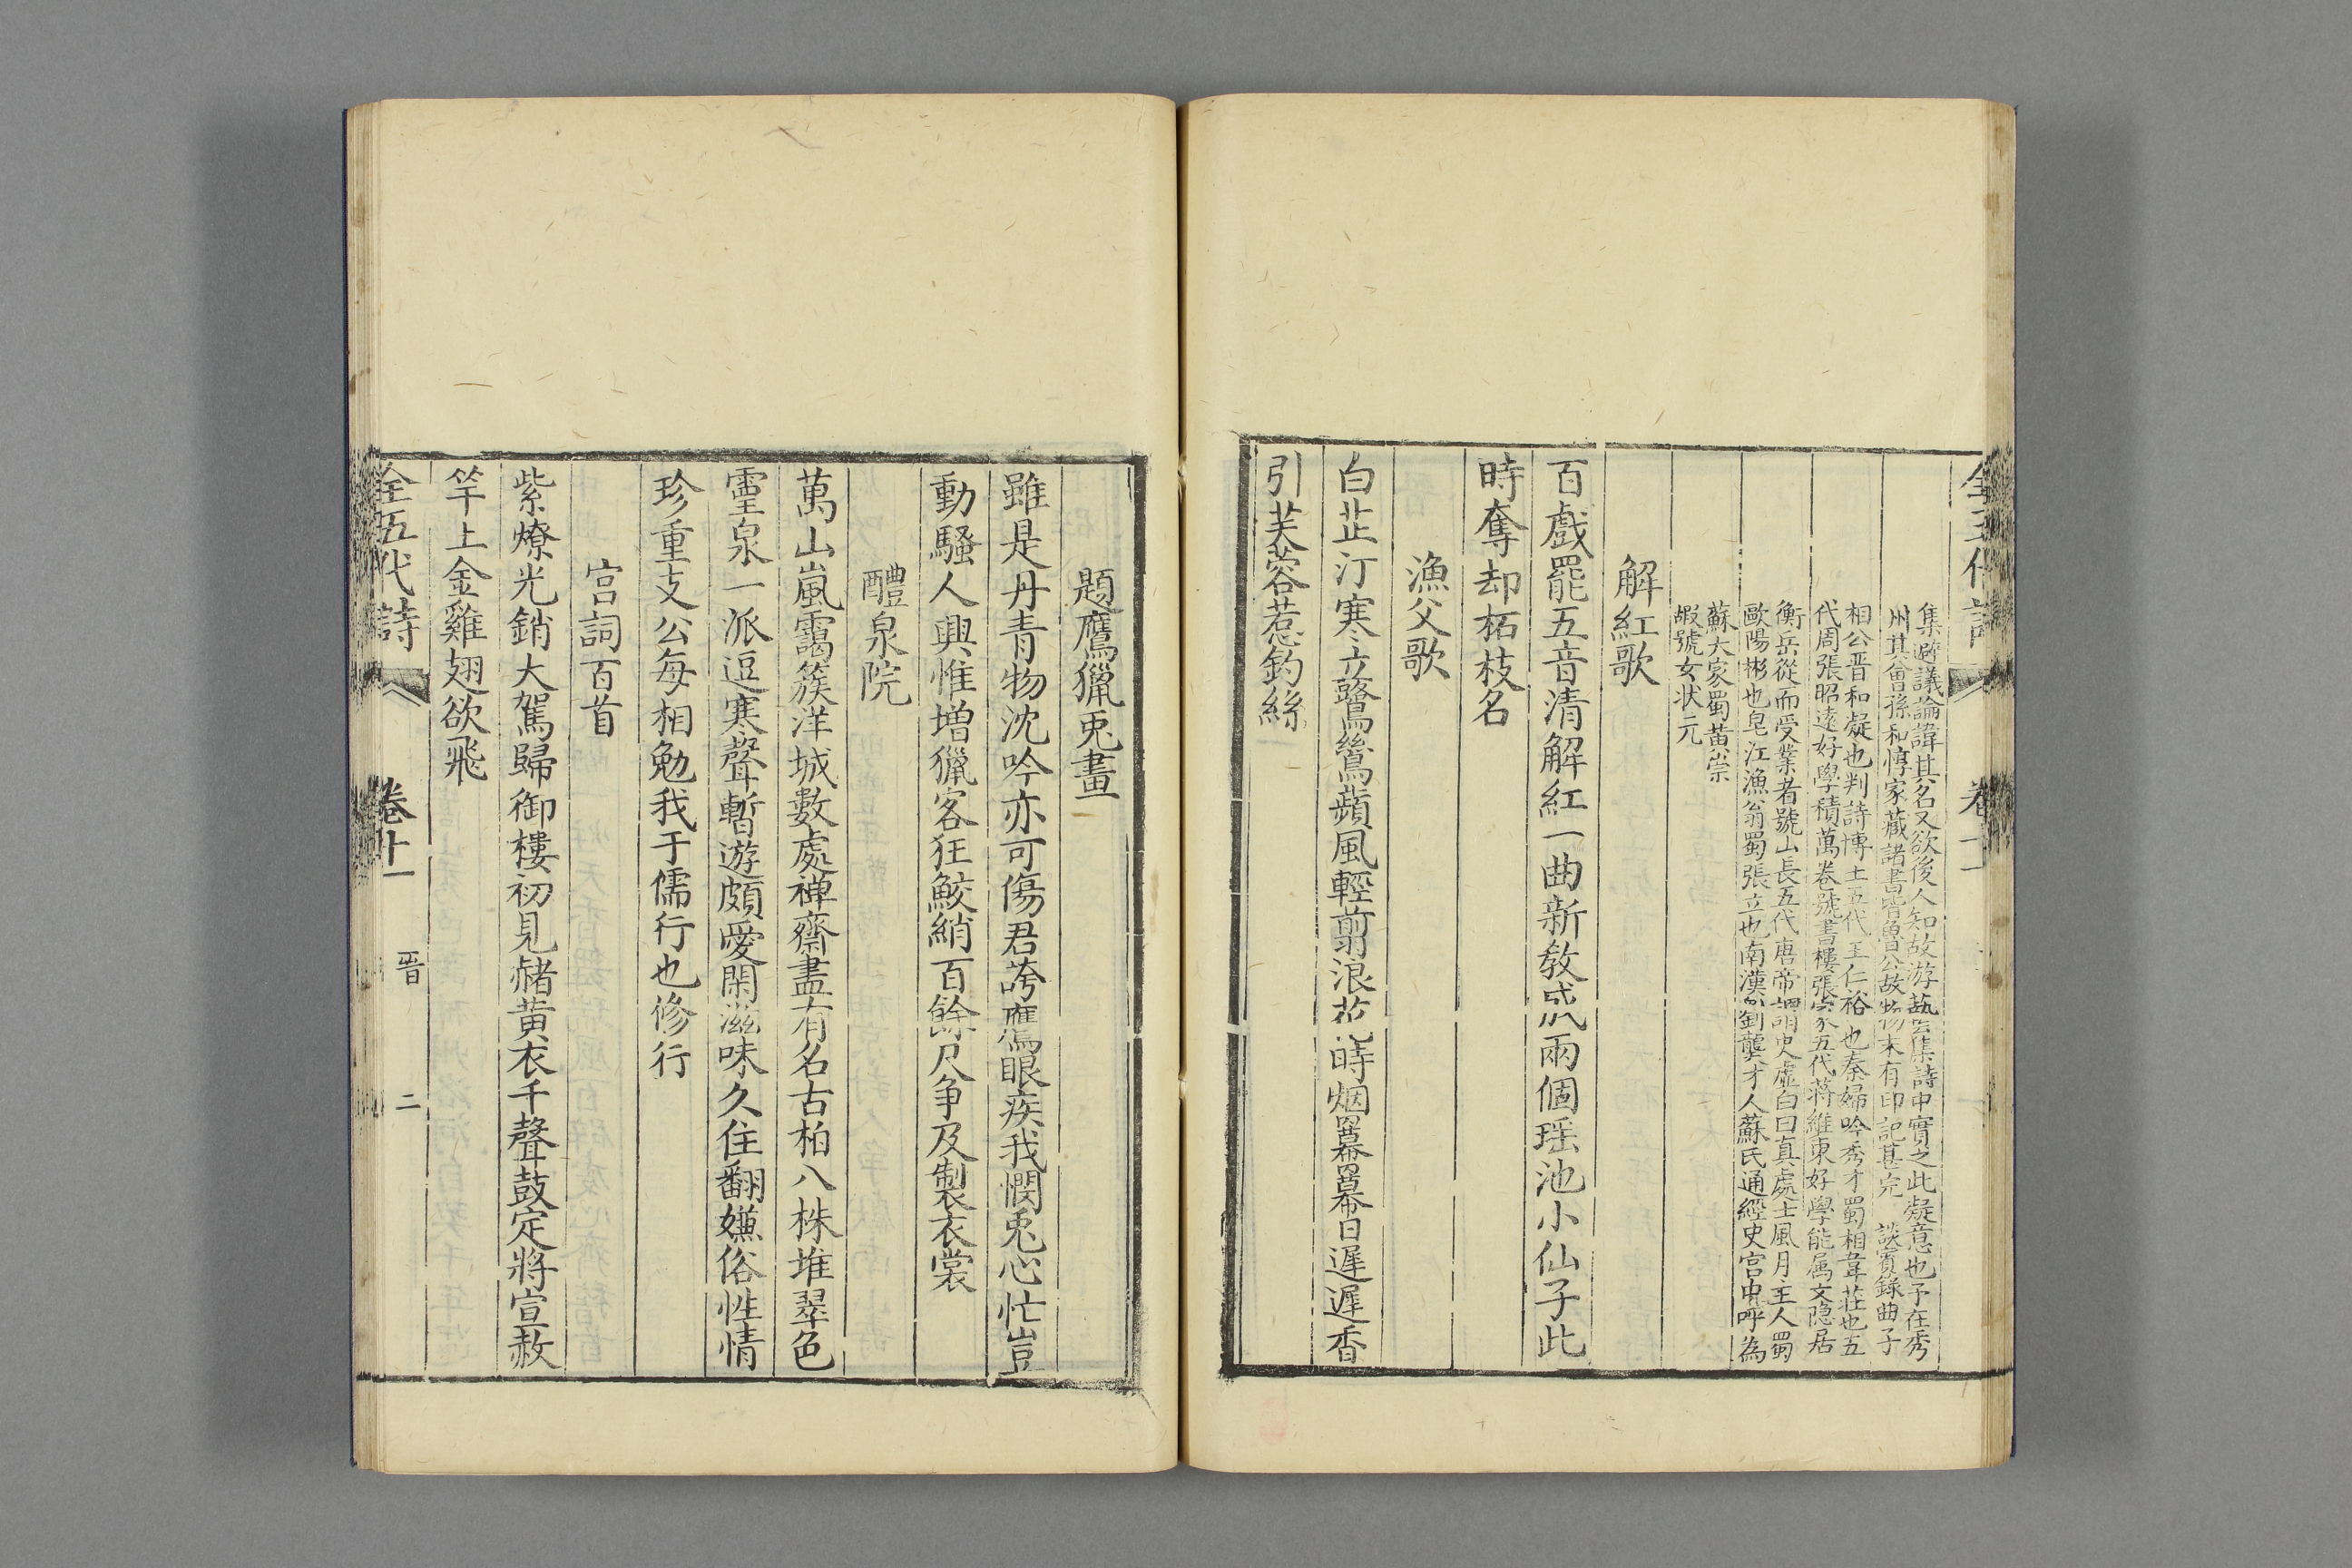 集避議論諱其名又欲後人知故游藝集詩中實之此凝意也予在秀
州其曾孫和惇家藏諸書皆魯公故物末有印記甚完 談賓錄曲子
相公晋和凝也判詩博士五代王仁裕也秦婦吟秀才蜀相韋莊也五
代周張昭遠好學積萬卷號書樓張家五代蔣維東好學能属文隐居
衡岳從而受業者號山長五代唐帝謂史虛白曰真處士風月主人蜀
歐陽彬也皂江漁翁蜀張立也南漢劉龑才人蘇氏通經史宫中呼為
蘇大家蜀黄崇
嘏號女状元
解紅歌
百戲罷五音清解紅一曲新敎成兩個瑶池小仙子此
時奪却柘枝名
漁父歌
白芷汀寒立鷺鷥蘋風輕翦浪花時烟羃羃日遲遲香
引芙蓉惹釣絲
題鷹獵兎畫
雖是丹青物沈吟亦可傷君誇鷹眼疾我憫兎心忙豈
動騷人興惟增獵客狂鮫綃百餘尺争及製衣裳
醴泉院
萬山嵐靄簇洋城數處禅齋盡有名古柏八株堆翠色
靈泉一派逗寒聲暫遊頗愛閑滋味久住翻嫌俗性情
珍重支公每相勉我于儒行也修行
宫詞百首
紫燎光銷大駕歸御樓初見赭黄衣千聲鼓定將宣赦
竿上金雞翅欲飛
全五代詩 卷十一 晋 二